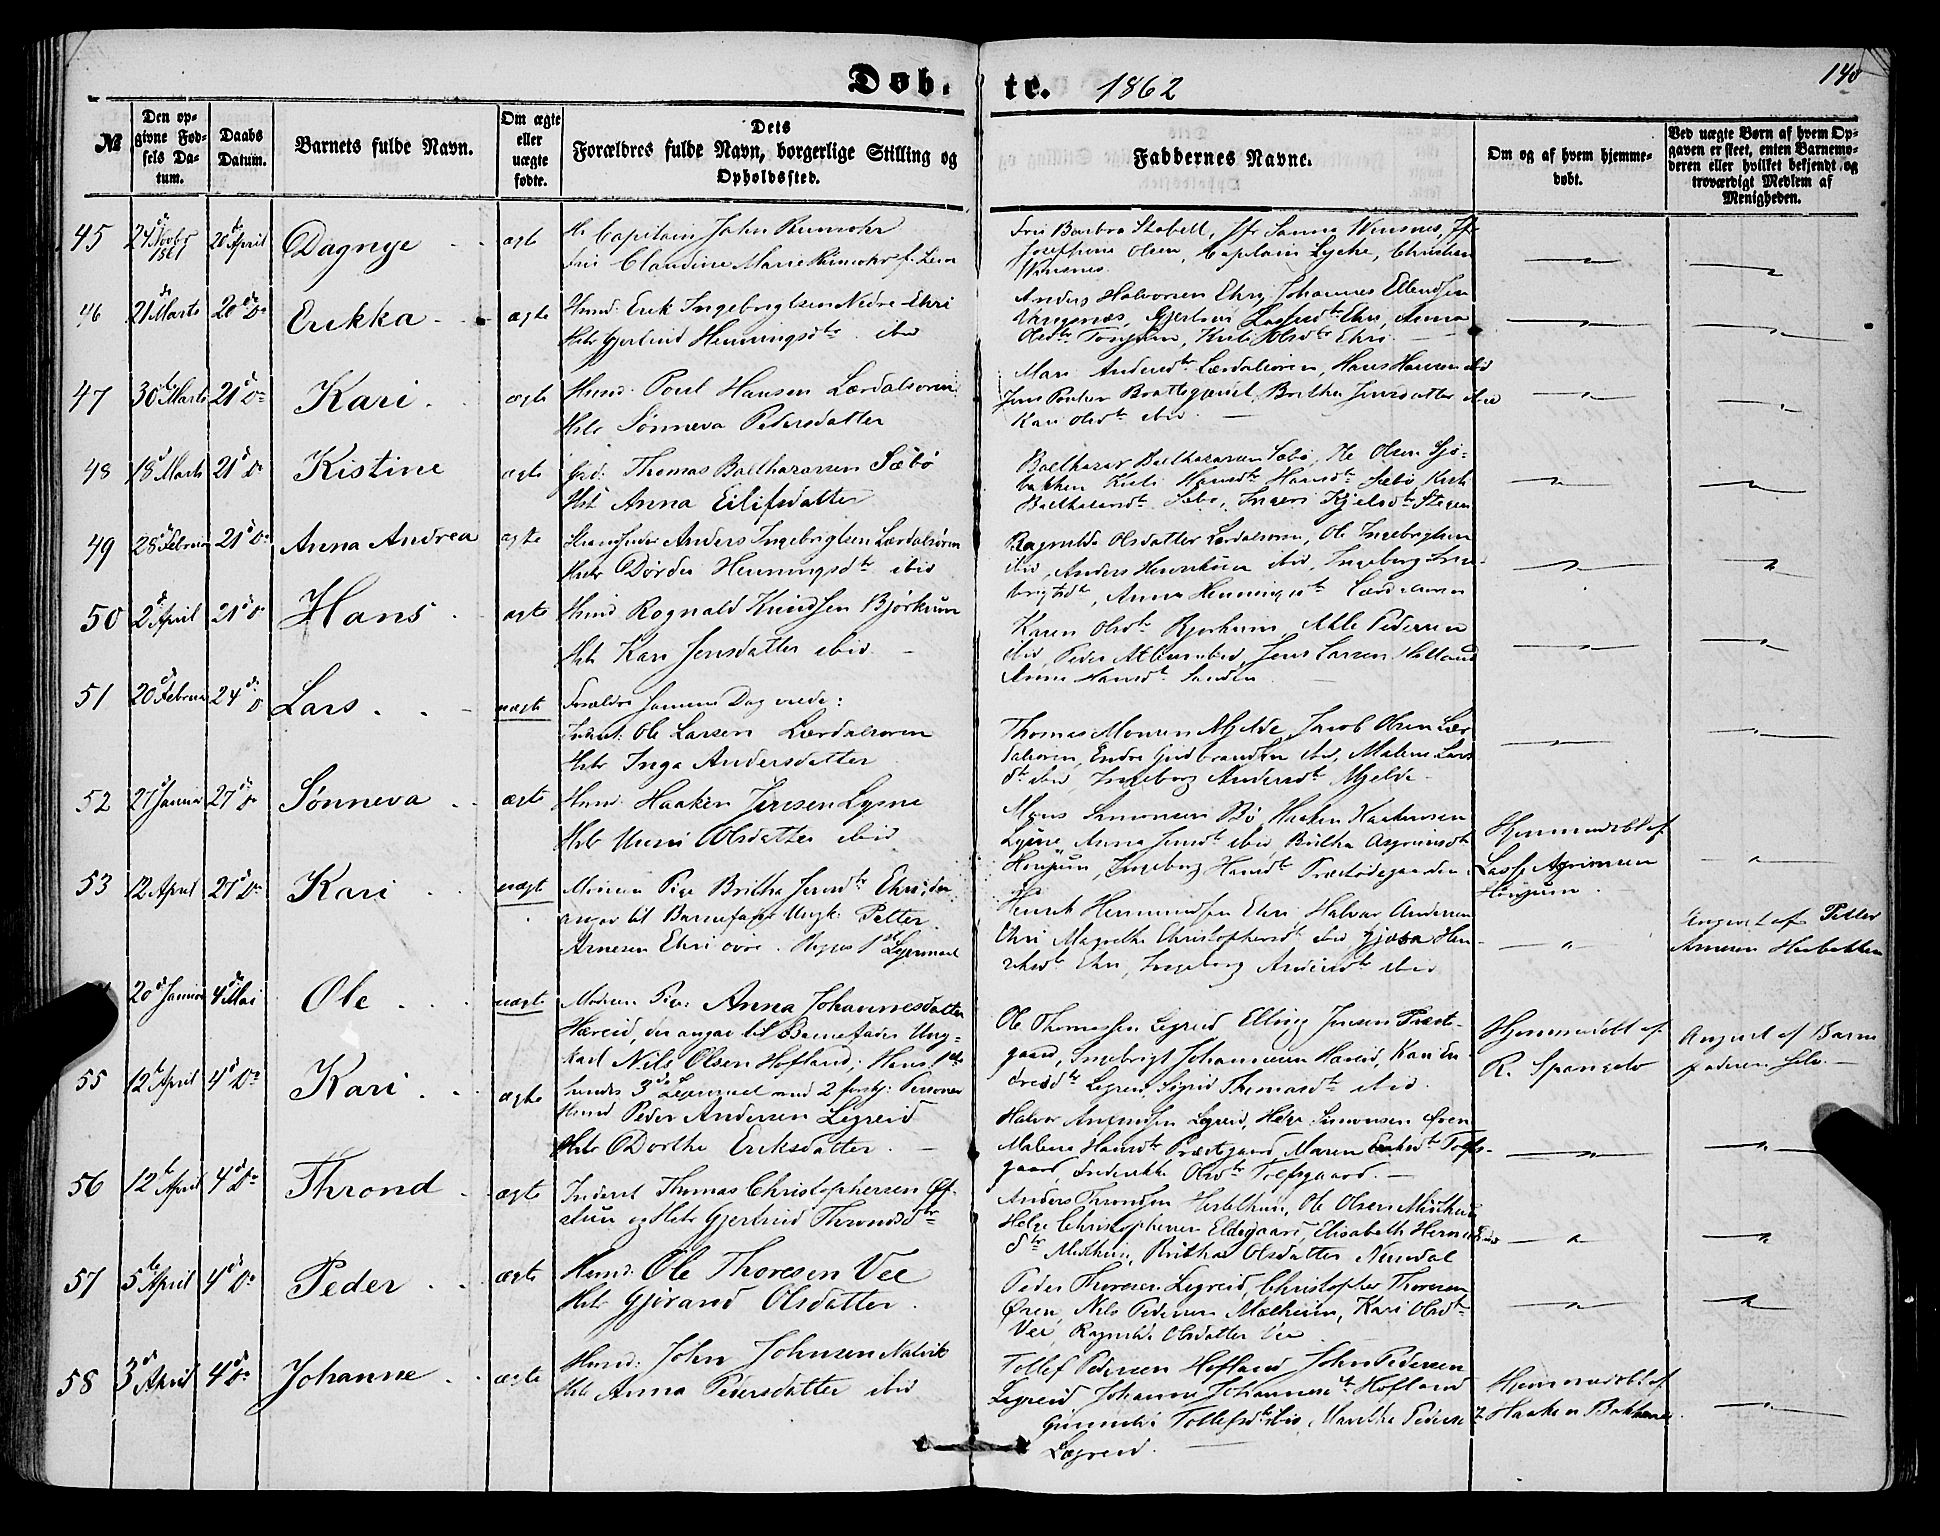 Døb. te. 1862
140
№
Den opgivne Fødsels Datum.
Daabs Datum.
Barnets fulde Navn.
Om ægte eller uægte fødte.
Dets Forældres fulde Navn, borgerlige Stilling og Opholdssted.
Faddernes Navne.
Om og af hvem hjemmedøbt.
Ved uægte Børn af hvem Opgaven er skeet, enten Barnemoderen eller hvilket bekjendt og troværdigt Medlem af Menigheden.
45 24 Novbr 1861 20 April Dagnye ægte
Capitain John Rumohr
Claudine Marie Rumohr f.
Barbra Stabell, Jfr Sanna Winsnes, Jfr
Josephine Olsen, Captain Lycke, Christian
Winsnes.
46 21 Marts 20 Do Erikka ægte
Husmd. Erik Ingebrigtsen Nedre-Ehri
Hstr Gjertrud Henningsdtr ibid
Anders Halvorsen Ehri, Johannes Ellendsen
Vangsnæs, Gjertrui Dtr Ehri, Anna
Olsdtr Tonjum, Olsdtr Ehri.
47 30 Marts 21 Do Kari ægte
Husmd. Poul Hansen Lærdalsøren
Hstr Sønneva Pedersdatter
Mari Andersdtr Lærdalsøren, Hans Hansen ibid
Jens Brattegjerdet, Britha Jensdatter ibid
Kari Olsdtr ibid.
48 18 Marts 21 Do Kistine ægte
Grd. Thomas Balthazarsen Sæbø
Hst Anna Eilifsdatter
Balthazar Balthazarsen Sæbø, Ole Olsen
Hansdtr Sæbø, Kirsti
Balthazarsdtr Sæbø, Ingeri Kjelsdtr
49 28 Februar 21 Do Anna Andrea ægte
Strandsidder Anders Ingebrigtsen Lærdalsøren
Hstr Dørdei Henningsdtr ibid
Ragnilda Olsdatter Lærdalsøren, Ole Ingebrigtsen
ibid, Anders ibid, Ingeborg Inge-
brigtsdtr, Anna Henningsdtr Lærdalsøren
50 2 April 21 Do Hans ægte
Husmd Rognald Knudsen Bjørkum
Hstr Kari Jensdatter ibid
Karen Olsdtr Bjorkum, Atle Pedersen
ibid, Peder Atlesen ibid, Jens Larsen
Anna Hansdtr
51 20 Februar 24 D Lars uægte
Forældre
Inderst: Ole Larsen Lærdalsøren
Hstr Inga Andersdatter
Thomas Monsen Mjelde, Jacob Olsen Lær-
dalsøren, Endre Gudbrandsen ibid, Malene Lars
dtr ibid, Ingeborg Andersdtr Mjelde
52 27 Januar 27 Do Sønneva ægte
Husmd. Haaken Jensen Lysne
Hstr Unni Olsdatter ibid
Mons Simonsen Bø, Haaken Haakensen
Lysne, Anna Jensdtr ibid, Britha Asgrimsdtr
Honjum, Ingeborg Hansdtr
Hjemmedøbt af
Lasse Asgrimsen
Honjum
53 12 April 27 Do Kari uægte
Moderen Pige Britha Jensdtr Ehri; den
angav til Barnefader Ungk: Petter
Arnesen Ehri øvre. Begges 1st Leiermaal
Henrik Hermundsen Ehri, Halvor Andersen
Ehri Magrethe Christophersdtr ibid, Gjøsa Hen-
riksdtr Ehri, Ingeborg Andersdtr ibid
Angivet af Petter
Arnesen
20 Januar 4 Mai Ole uægte
Moderen Pige: Anna Johannesdatter
Hæreid, der angav til Barnefader Ung-
karl Nils Olsen Hofland, Hans 1ste
hendes 3die Leiermaal med 2 forskj: Personer
Ole Thomassen Legreid Elling Jensen Præst-
gaard, Ingebrigt Johannesen Hæreid, Kari En-
dresdtr Legreid, Sigrid Thomasdtr ibid.
Hjemmedøbt af
R. Spangelo
Angivet af Barne
faderen selv
55 12 April 4 Do Kari ægte
Husmd Peder Andersen Legreid
Hstr Dorthe Eriksdatter
Halvor Legreid, Helge Simonsen Øren
Malene Hansdtr Præstgaard, Maren dtr Tofs-
gaard, Frederikke Olsdtr Tofsgaard.
56 12 April 4 Do Thrond ægte
Inderst Thomas Christophersen
og Hstr Gjertrud Throndsdtr
Anders Throndsen, Ole Olsen
Helge Christophersen Eldegaard, Elisabeth
dtr, Britha Olsdatter Nundal
57 5 April 4 Do Peder ægte
Husmd: Ole Thoresen Vee
Hstr Gjørand Olsdatter.
Peder Thoresen Legreid, Christopher Thoresen
Øren, Nils Pedersen Mælheim, Kari Olsdtr
Vee, Ragnilda Olsdatter Vee
58 3 April 4 Do Johanne ægte
Husmd: John Johnsen Nalvik
Hstr Anna Pedersdatter ibid
Tollef Pedersen Hofland, John Pedersen
Legreid, Johanne Johannesdtr Hofland
Tollefsdtr ibid, Maritha Peders
Lægreid.
Hjemmedøbt af
Haaken Bakkene